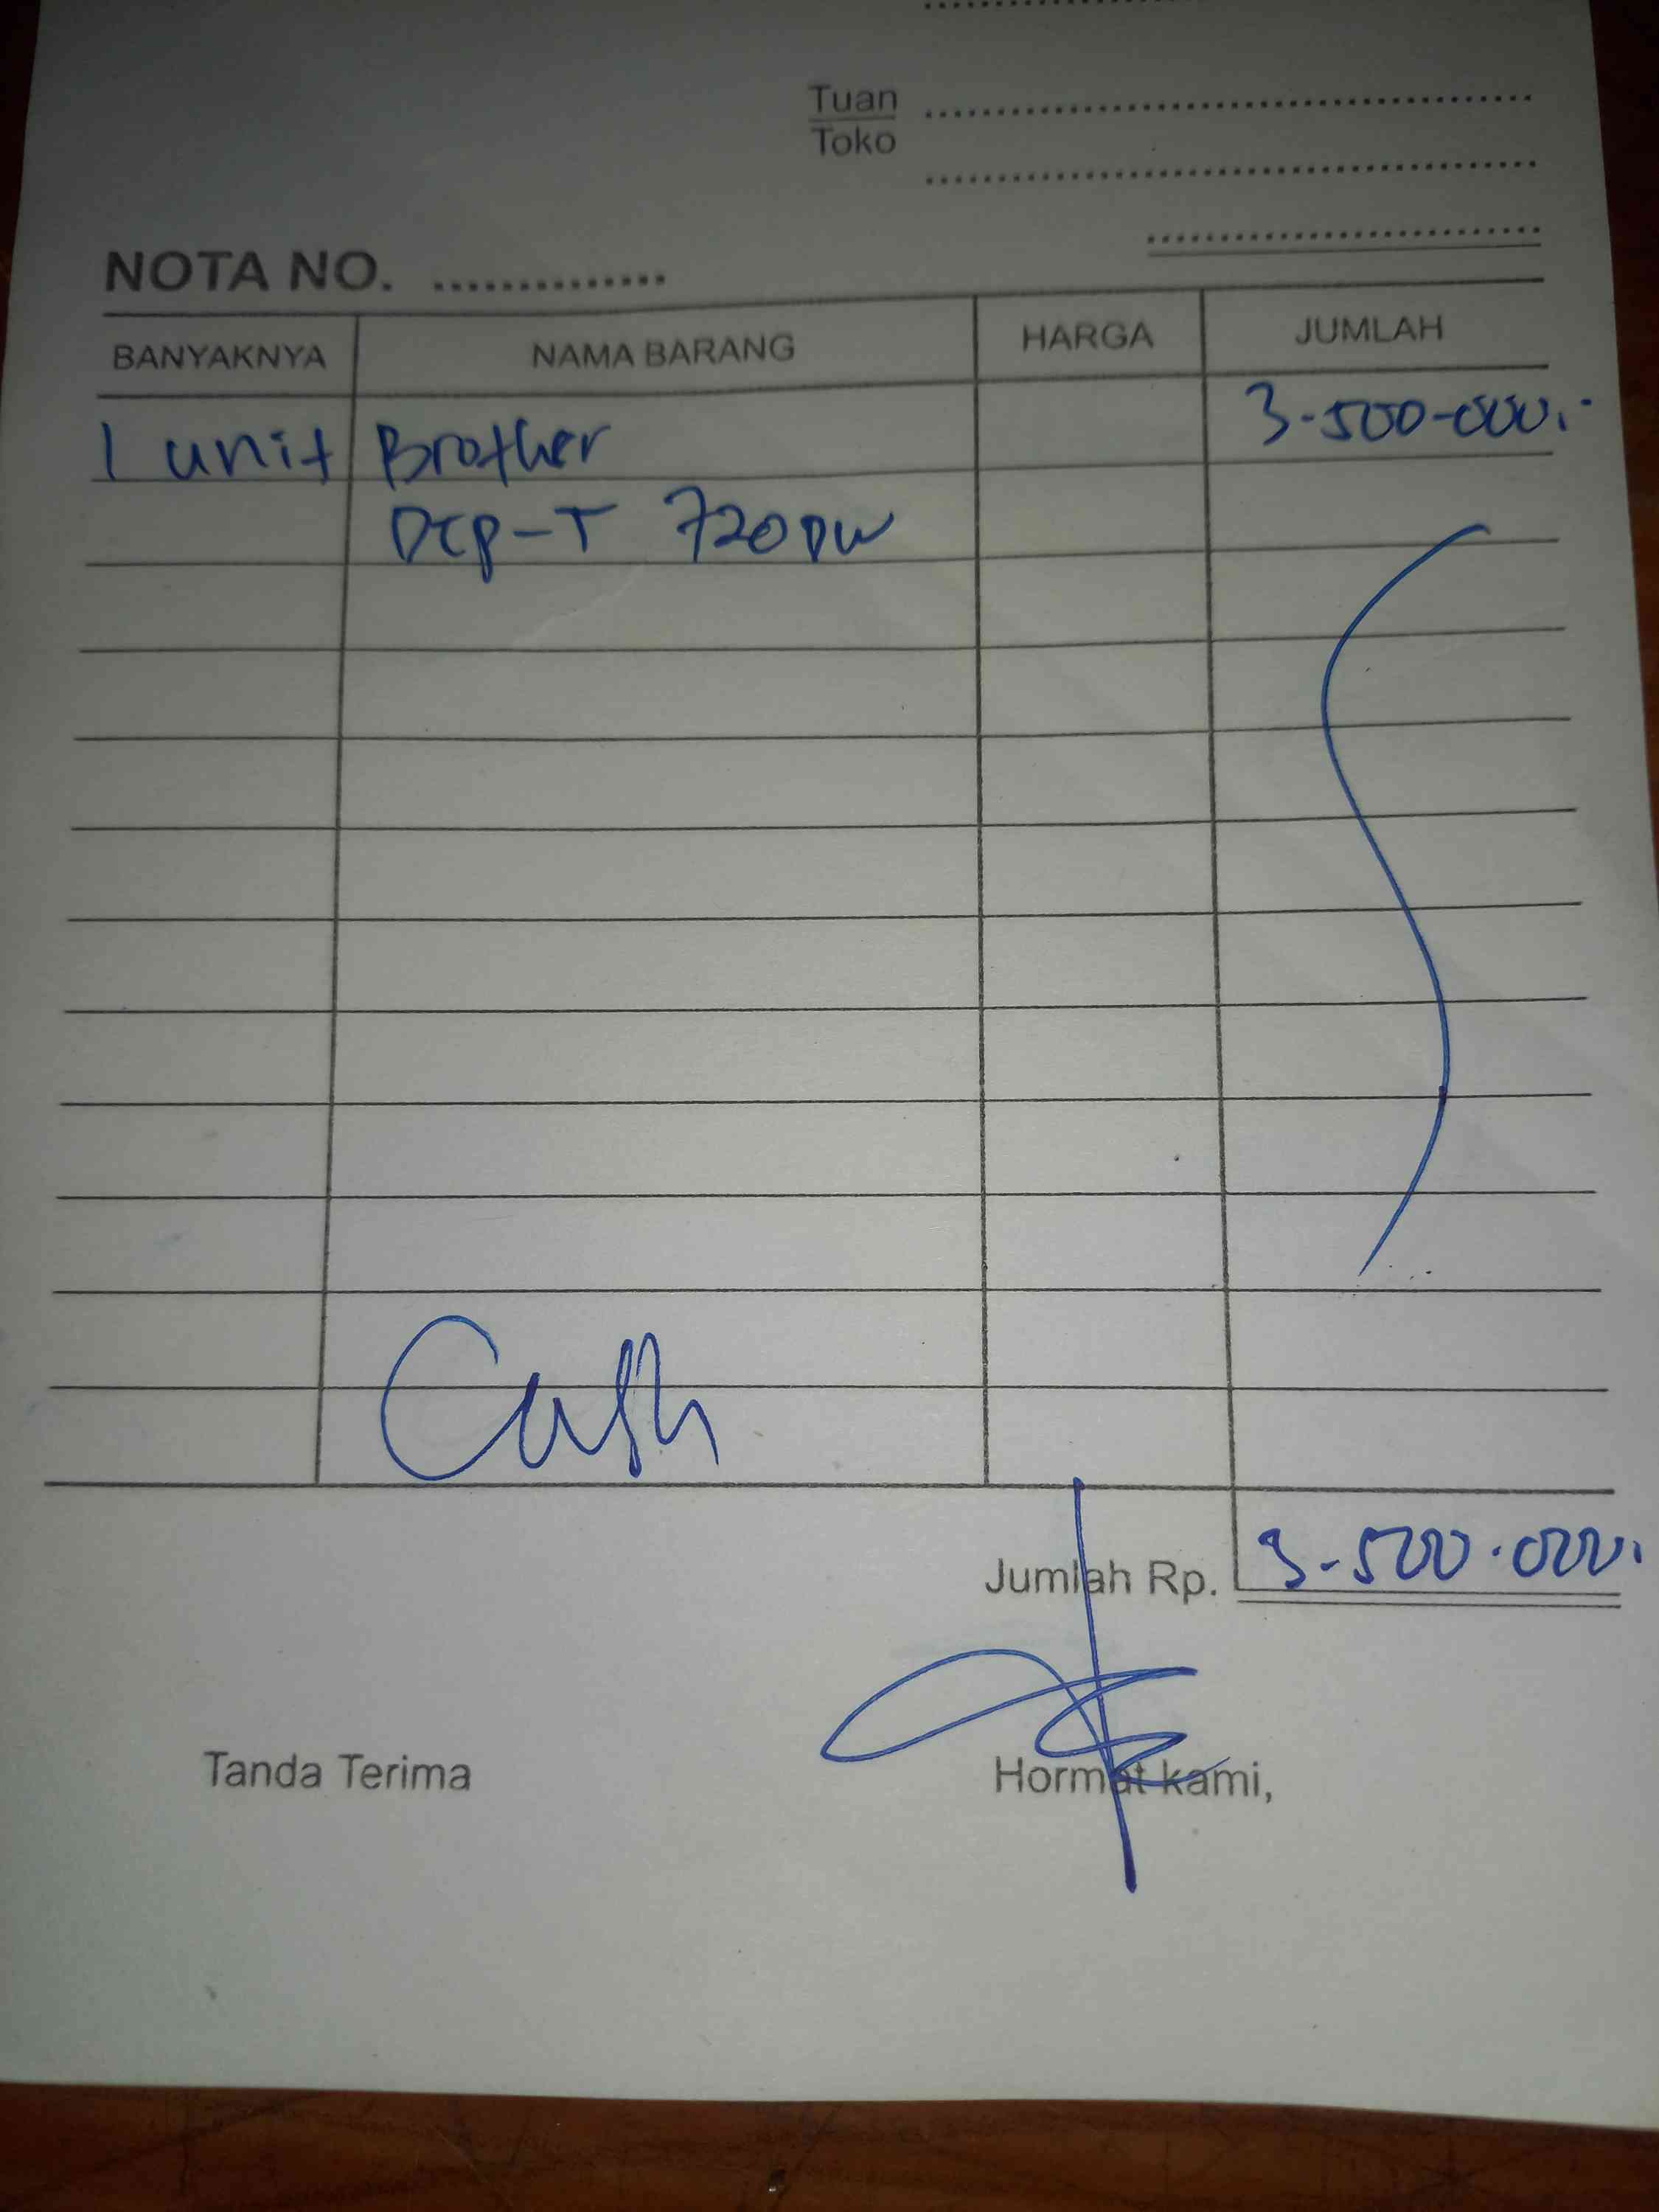 Tuan
Toko
NOTA NO. ..............
BANYAKNYA NAMA BARANG HARGA JUMLAH
1 unit Brother 3-500-000.-
DCP-T 720DW
Cash
Jumlah Rp. 3-500.000.
Tanda Terima Hormat kami,